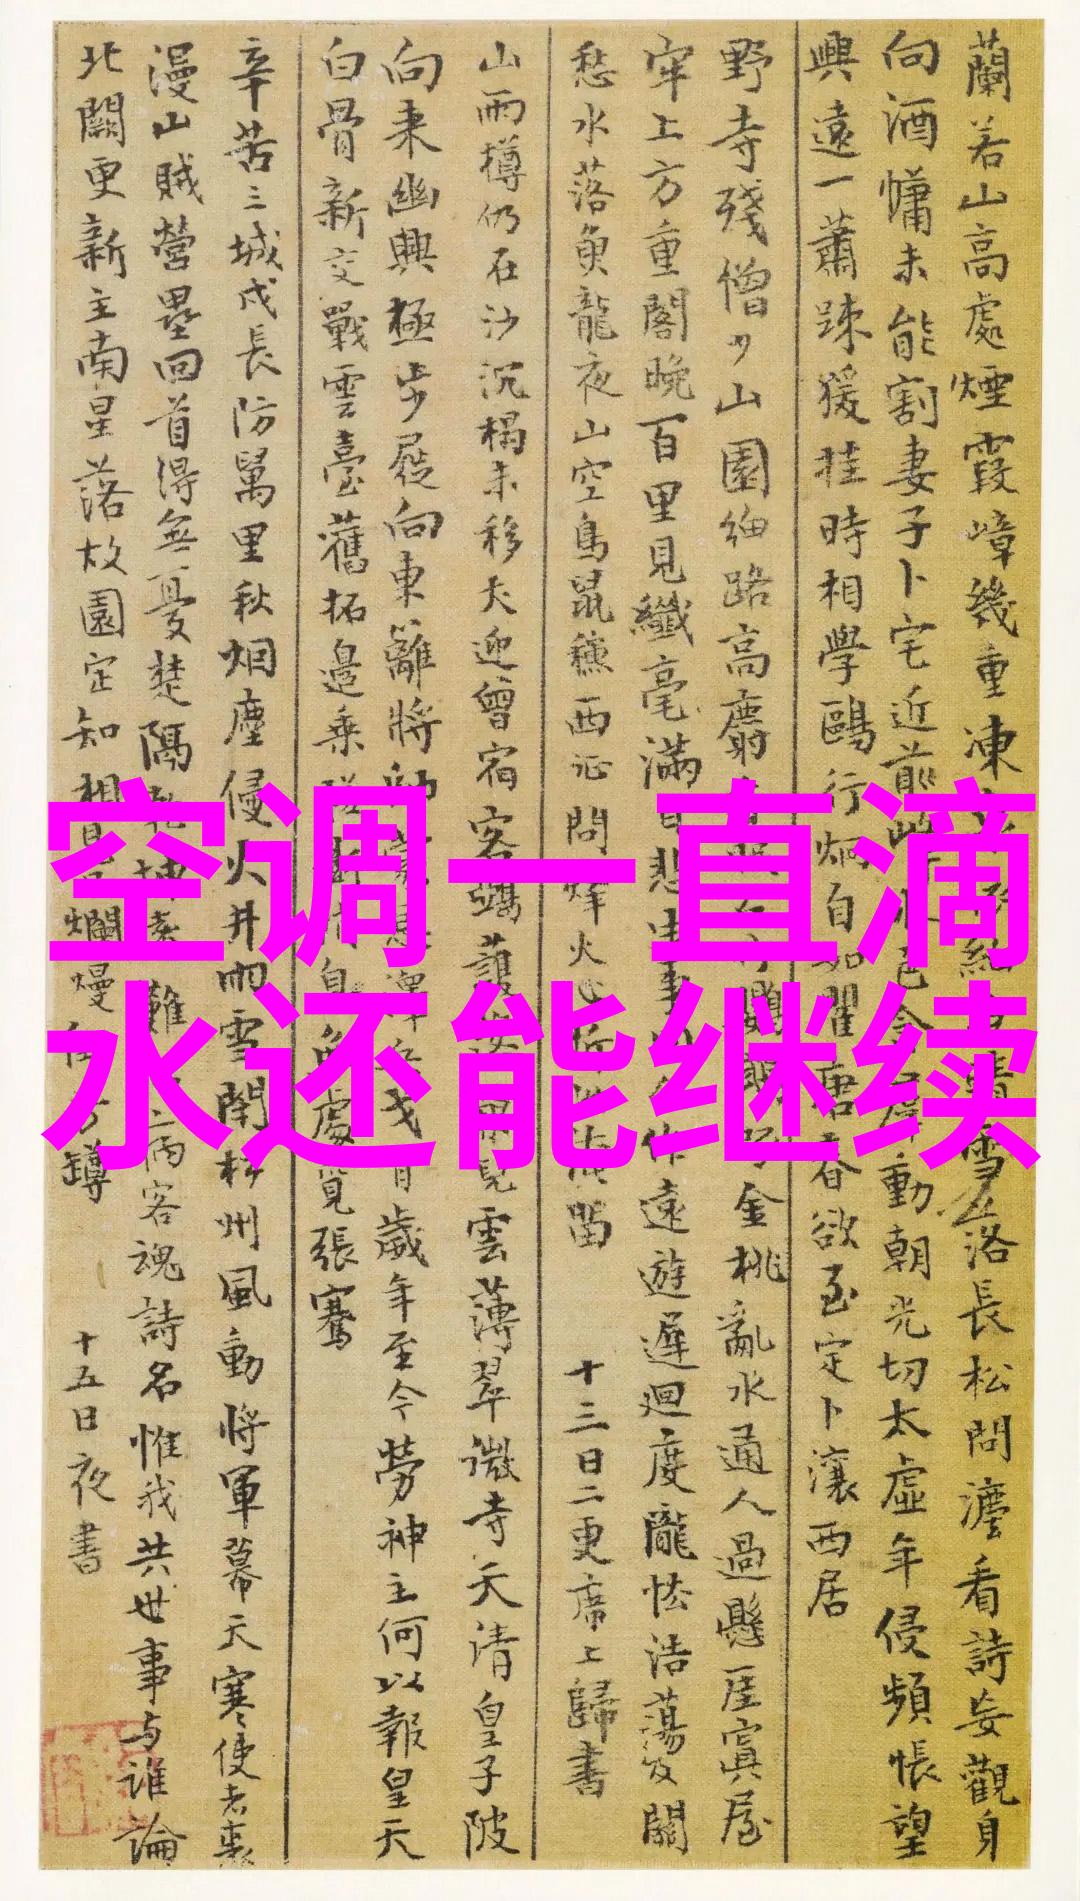 蘭若山高處煙霞嶂幾重凍
落長松問灋看詩妄觀身
向酒慵未能割妻子卜宅近前
水色含
動朝光切太虛年侵頻悵望
興遠一蕭踈猨挂時相學鷗行炯自如瞿唐春欲至定卜瀼西居
野寺殘僧少山園細路高麝
金桃亂水通人過懸崖寘屋
牢上方重閣晚百里見纖毫滿
悲生事
人作遠遊遲迴度隴怯浩蕩及關
愁水落魚龍夜山空鳥鼠穐西征問烽火心折
留 十三日二更席上歸書
山雨樽仍在沙沉榻未移犬迎曾宿客鵶護
見雲薄翠微寺天清皇子陂
向来幽興極步屣向東籬將
歲年至今勞神主何以報皇天
白骨新交戰雲臺舊拓邉乘
處覓張騫
辛苦三城戍長防萬里秋烟塵侵火井雨雪閉松州風動將軍幕天寒使者裘
漫山賊營壘回首得無憂楚隔乾坤
難
客魂詩名惟我共世事与誰論
北闕更新主南星落故園定知相見爛熳
罇 十五日夜書
空调一直滴
水还能继续